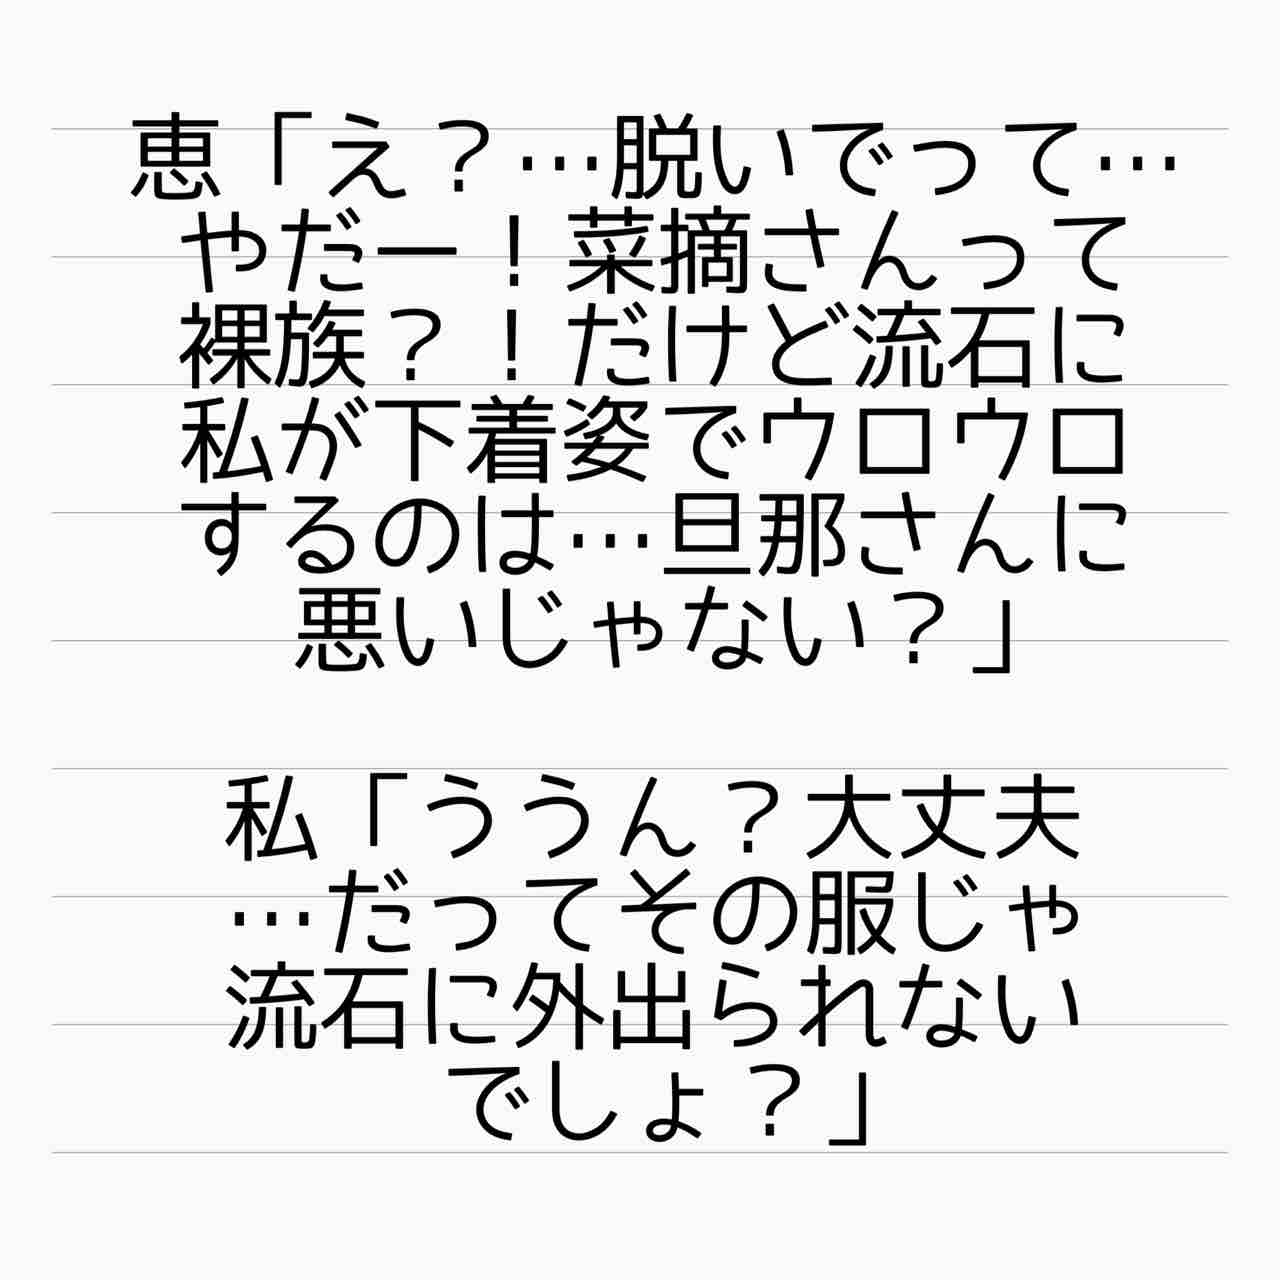 恵「え？…脱いでって…
やだー！菜摘さんって
裸族？！だけど流石に
私が下着姿でウロウロ
するのは…旦那さんに
悪いじゃない？」
私「ううん？大丈夫
…だってその服じゃ
流石に外出られない
でしょ？」